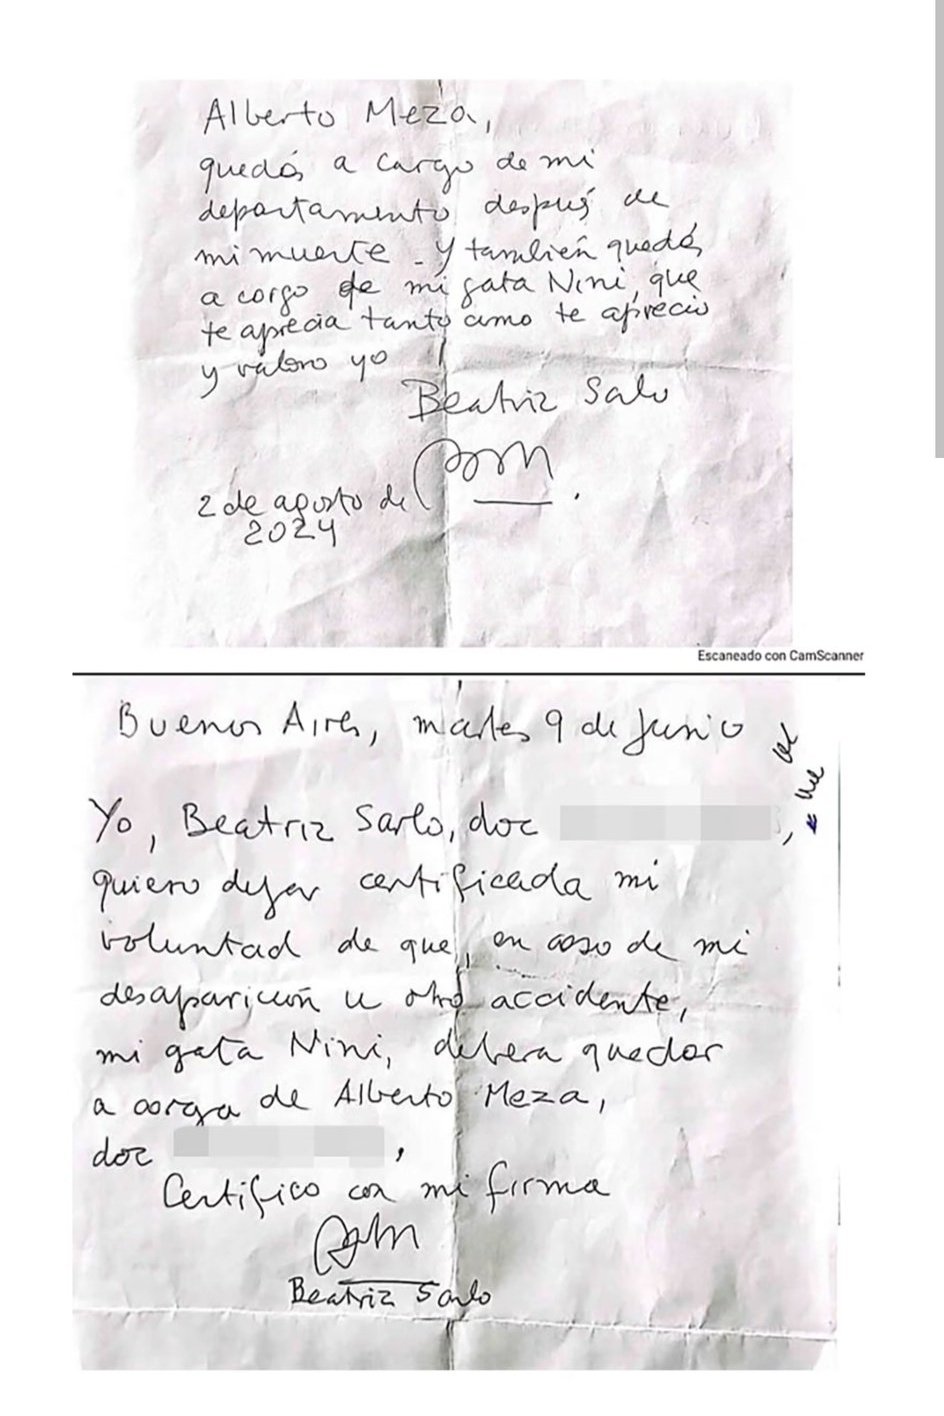 Alberto Meza,
quedás a cargo de mi
departamento después de
mi muerte - y también quedás
a cargo de mi gata Nini, que
te aprecia tanto como te aprecio
y valoro yo
Beatriz Sarlo
2 de agosto de
2024
Escaneado con CamScanner
Buenos Aires, martes 9 de junio
Yo, Beatriz Sarlo, doc
,
quiero dejar certificada mi
voluntad de que, en caso de mi
desaparición u otro accidente,
mi gata Nini, debera quedar
a cargo de Alberto Meza,
doc ,
Certifico con mi firma
Beatriz Sarlo